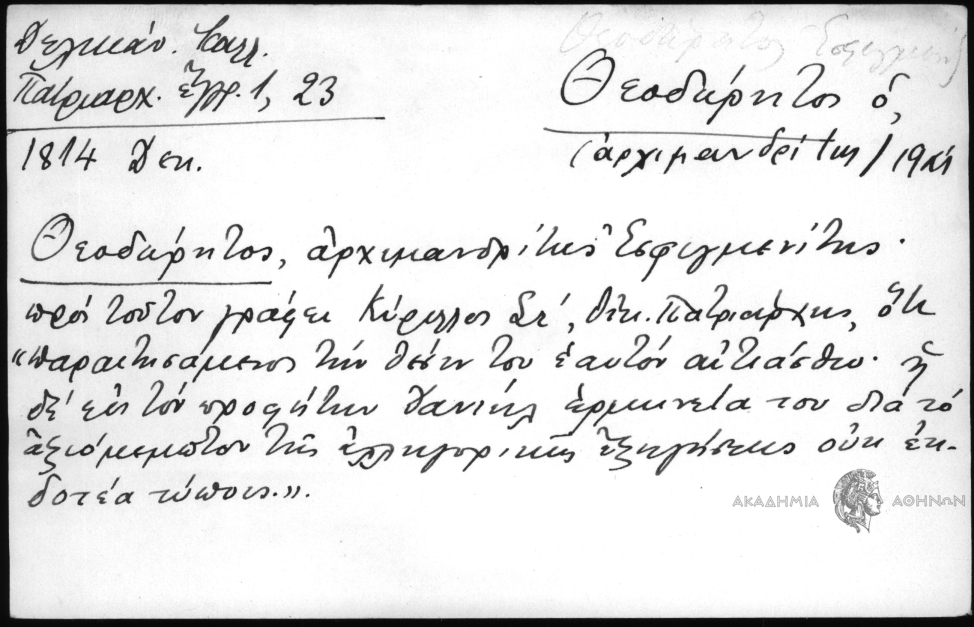 Δελικάν. Καλλ.
Πατριαρχ. ἔγγρ. 1, 23
1814 Δεκ.
Θεοδώρητος Ἐσφιγμενί
Θεοδώρητος ὁ,
(ἀρχιμανδρίτης)
Θεοδώρητος, ἀρχιμανδρίτης Ἐσφιγμενίτης·
πρὸς τοῦτον γράφει Κύριλλος Ϛ΄, Οἰκ. Πατριάρχης, ὅτι
«παραιτησάμενος τὴν θέσιν του ἑαυτὸν αἰτιάσθω· ἡ
δὲ εἰς τὸν προφήτην Δανιὴλ ἑρμηνεία του διὰ τὸ
ἀξιόμεμπτον τῆς ἀλληγορικῆς ἐξηγήσεως οὐκ ἐκ-
δοτέα τύποις.».
ΑΚΑΔΗΜΙΑ ΑΘΗΝΩΝ